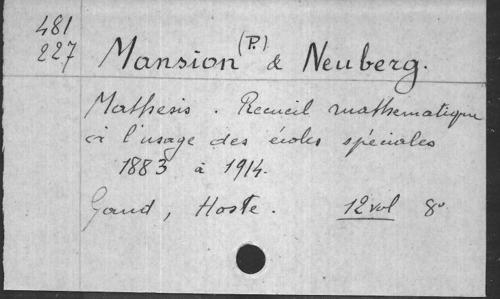 481
227
Mansion (P.) & Neuberg.
Mathesis. Recueil mathematique
à l'usage des écoles spéciales
1883 à 1914.
Gand, Hoste. 12 vol 8°